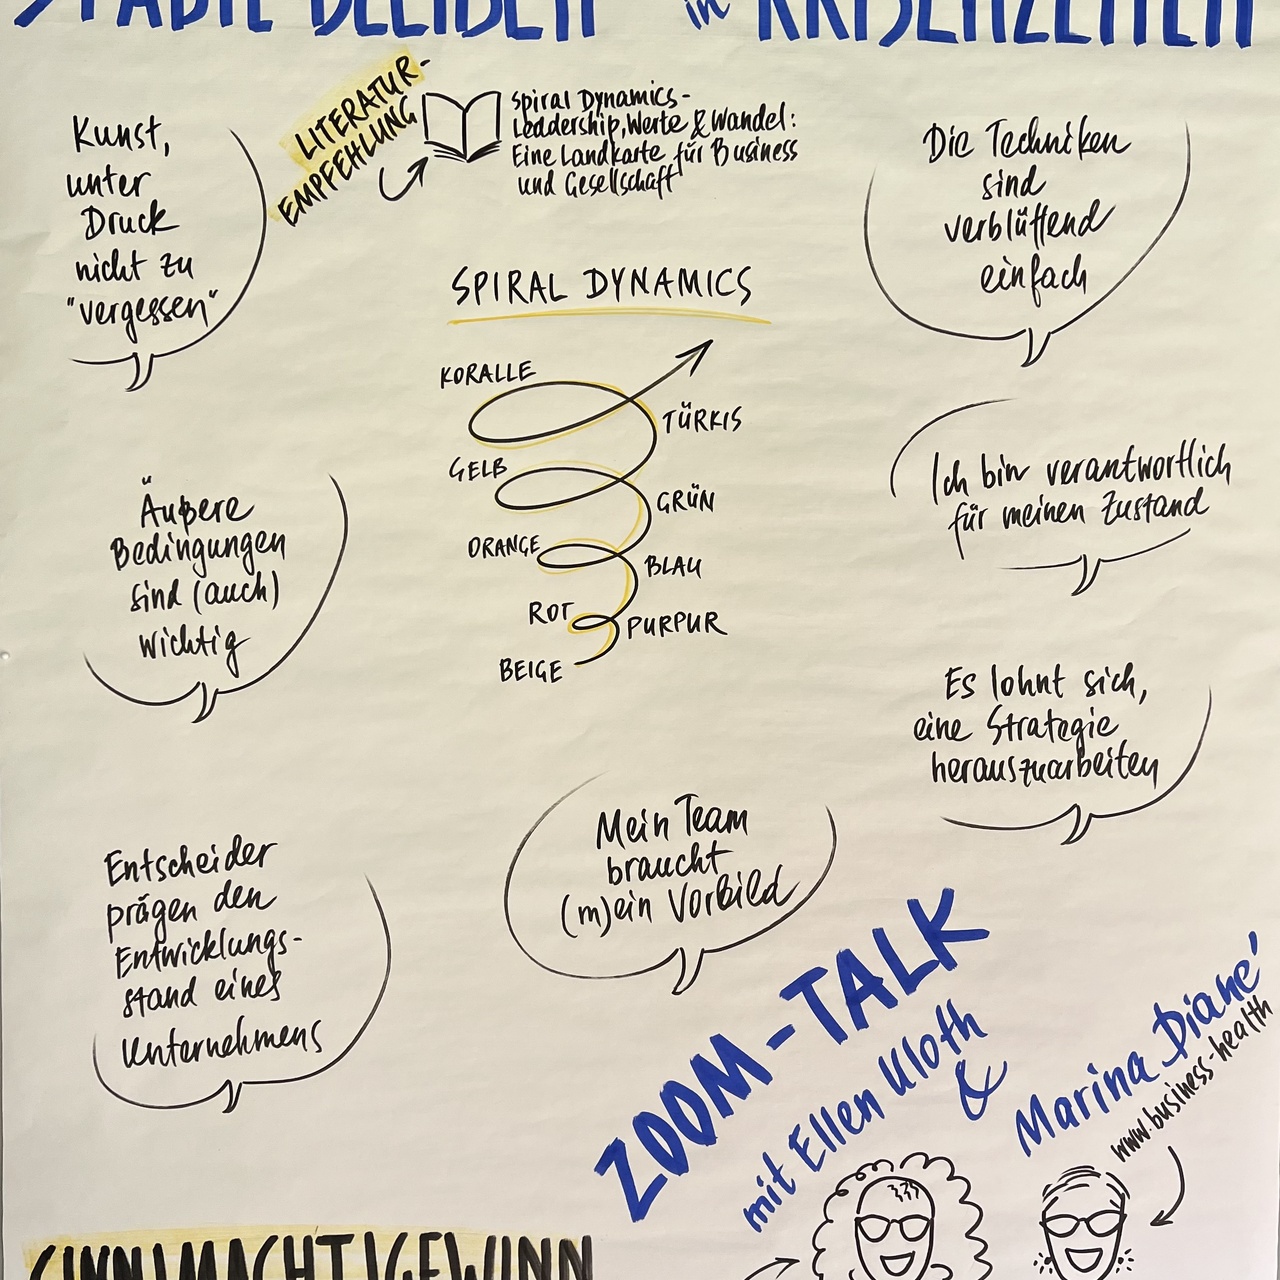 STABIL BLEIBEN in KRISENZEITEN
LITERATUR-
EMPFEHLUNG
Spiral Dynamics-
Leddership, Werte & Wandel:
Eine Landkarte für Business
und Gesellschaft
Kunst,
unter
Druck
nicht zu
"vergessen"
Die Techniken
sind
verblüffend
einfach
SPIRAL DYNAMICS
KORALLE
TÜRKIS
GELB
GRÜN
ORANGE
BLAU
ROT
PURPUR
BEIGE
Äußere
Bedingungen
sind (auch)
wichtig
Ich bin verantwortlich
für meinen Zustand
Es lohnt sich,
eine Strategie
herauszuarbeiten
Mein Team
braucht
(m)ein Vorbild
Entscheider
prägen den
Entwicklungs-
stand eines
Unternehmens
ZOOM-TALK
mit Ellen Uloth
&
Marina Diané
www.business-health
SINN|MACHT|GEWINN